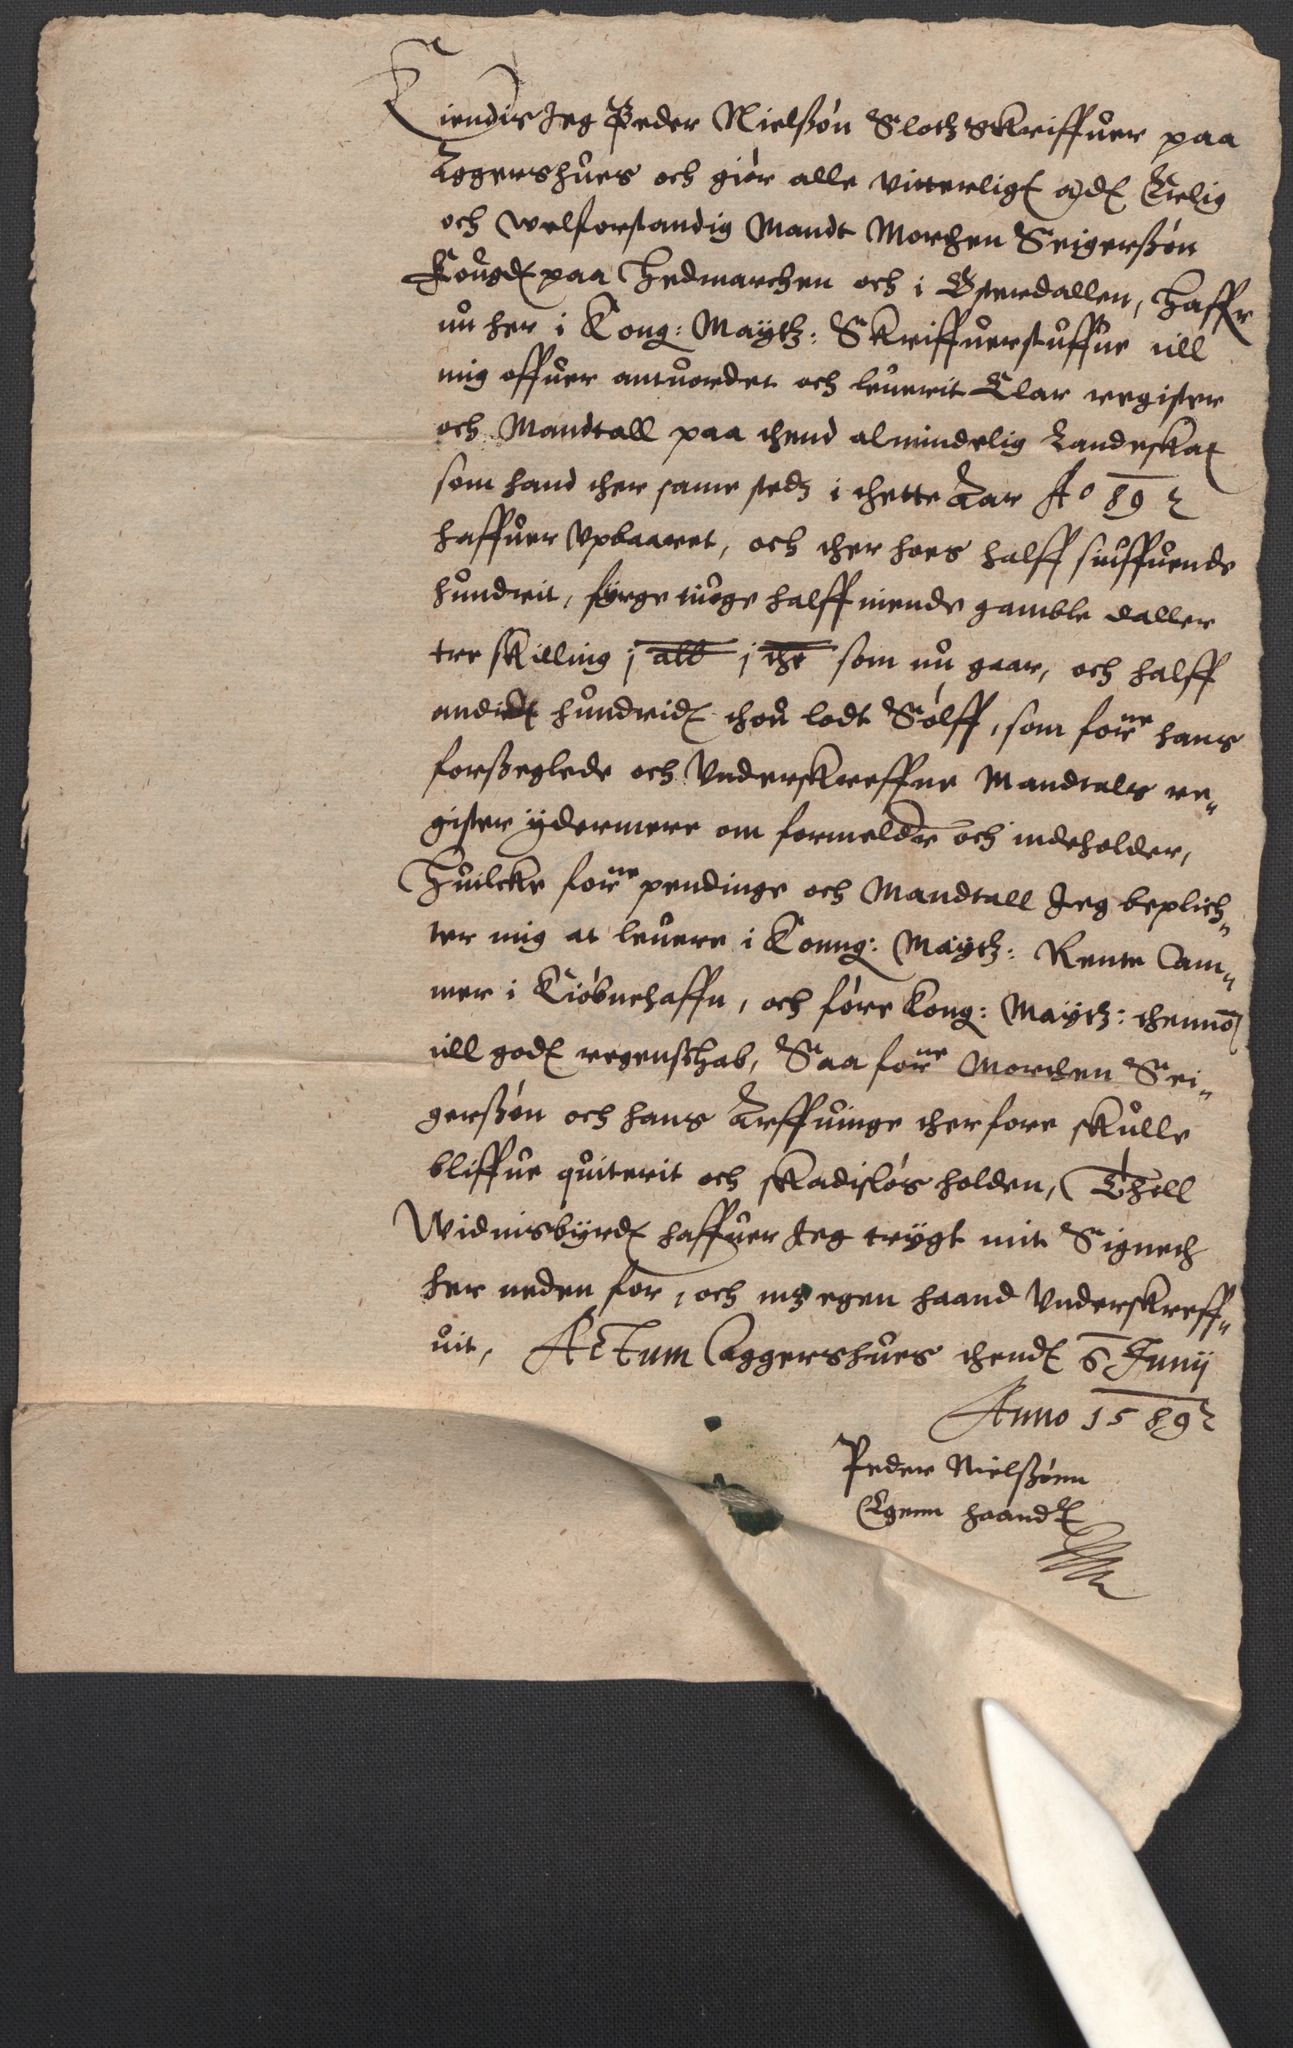 Kiendis Jeg Peder Nielßøn Slotz Skriffuer paa
Aggershuus och giør alle vitterligt at Erlig
och welforstandig Mandt Morthen Seigerßøn
Fougdt paa Hedmarchen och i Østerdallen, Haffr
nu her i Kong: Maytz: Skriffuerstuffue till
mig offuer antuordet och leuerit Clar register
och Mandtall paa thend almindelig Landeskat
som hand ther same stedz i thette Aar Ao 89
haffuer Vpbaaret, och ther hoes halff siuffuende
hundrit, fyrge tiuge halff niende gamble daller
tre skilling j alb j the som nu gaar, och halff
andet hundridt thou lodt Sølff, som forne hans
forßeglede och Vnderskreffne Mandtals re-
gister ydermere om formelder och indeholder,
Huilcke forne pendinge och Mandtall Jeg beplich-
ter mig at leuere i Konng: Maytz: Rente Cam-
mer i Kiøbnehaffn, och føre Kong: Maytz: thennō
till godt regenschab, Saa forne Morthen Sei-
gerßøn och hans Arffuinge therfore skulle
bliffue quiterit och skadisløs holden, Thill
Widnisbyrdt haffuer Jeg trygt mit Signeth
her neden for, och mz egen haand Vnderskreff-
uit, Actum Aggershuus thend 6 Junij
Anno 1589
Peder Nielßønn
Egenn haandt